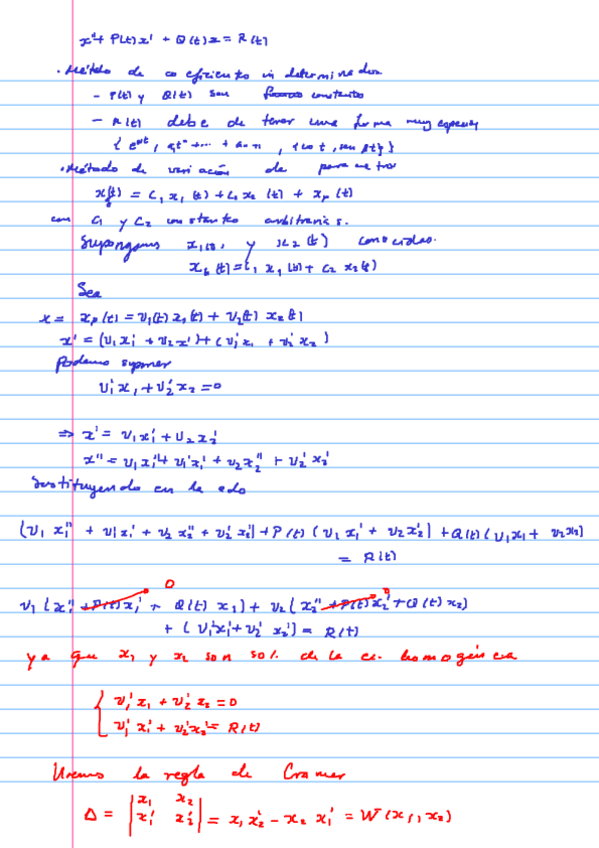 x'' + P(t) x' + Q(t) x = R(t)
· Método de coeficientes indeterminados
– P(t) y Q(t) son constantes
– R(t) debe de tener una forma muy especial
· Método de variación de parametros
x(t) = c₁ x₁(t) + c₂ x₂(t) + xₚ(t)
con c₁ y c₂ constantes arbitrarias.
Supongamos x₁(t), y x₂(t) conocidas.
xₕ(t) = c₁ x₁(t) + c₂ x₂(t)
Sea
x = xₚ(t) = v₁(t) x₁(t) + v₂(t) x₂(t)
x' = (v₁ x₁' + v₂ x') + (v₁' x₁ + v₂' x₂)
Podemos suponer
v₁' x₁ + v₂' x₂ = 0
⇒ x' = v₁ x₁' + v₂ x₂'
x'' = v₁ x₁'' + v₁' x₁' + v₂ x₂'' + v₂' x₂'
Sustituyendo en la edo
(v₁ x₁'' + v₁' x₁' + v₂ x₂'' + v₂' x₂') + P(t) (v₁ x₁' + v₂ x₂') + Q(t) (v₁ x₁ + v₂ x₂)
= R(t)
0 0
v₁ (x₁'' + P(t) x₁' + Q(t) x₁) + v₂ (x₂'' + P(t) x₂' + Q(t) x₂)
+ (v₁' x₁' + v₂' x₂') = R(t)
ya que x₁ y x₂ son sol. de la ec. homogénea
{ v₁' x₁ + v₂' x₂ = 0
v₁' x₁' + v₂' x₂' = R(t)
Usemos la regla de Cramer
Δ = | x₁ x₂ |
| x₁' x₂' | = x₁ x₂' - x₂ x₁' = W(x₁, x₂)